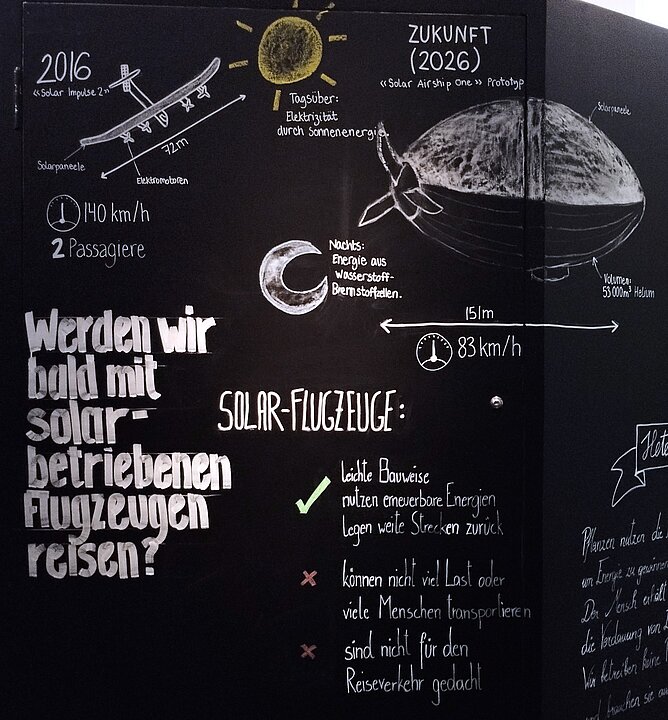 2016
«Solar Impulse 2»
Solarpaneele
72m
Elektromotoren
140 km/h
2 Passagiere
Tagsüber:
Elektrizität
durch Sonnenenergie.
ZUKUNFT
(2026)
«Solar Airship One» Prototyp
Solarpaneele
Volumen:
53'000m³ Helium
151m
83 km/h
Nachts:
Energie aus
Wasserstoff-
Brennstoffzellen.
Werden wir
bald mit
solar-
betriebenen
Flugzeugen
reisen?
SOLAR-FLUGZEUGE:
leichte Bauweise
nutzen erneuerbare Energien
legen weite Strecken zurück
können nicht viel Last oder
viele Menschen transportieren
sind nicht für den
Reiseverkehr gedacht
Pflanzen nutzen die
um Energie zu gewinnen
Der Mensch erhält
die Verdauung von
Wir betreiben keine
brauchen sie